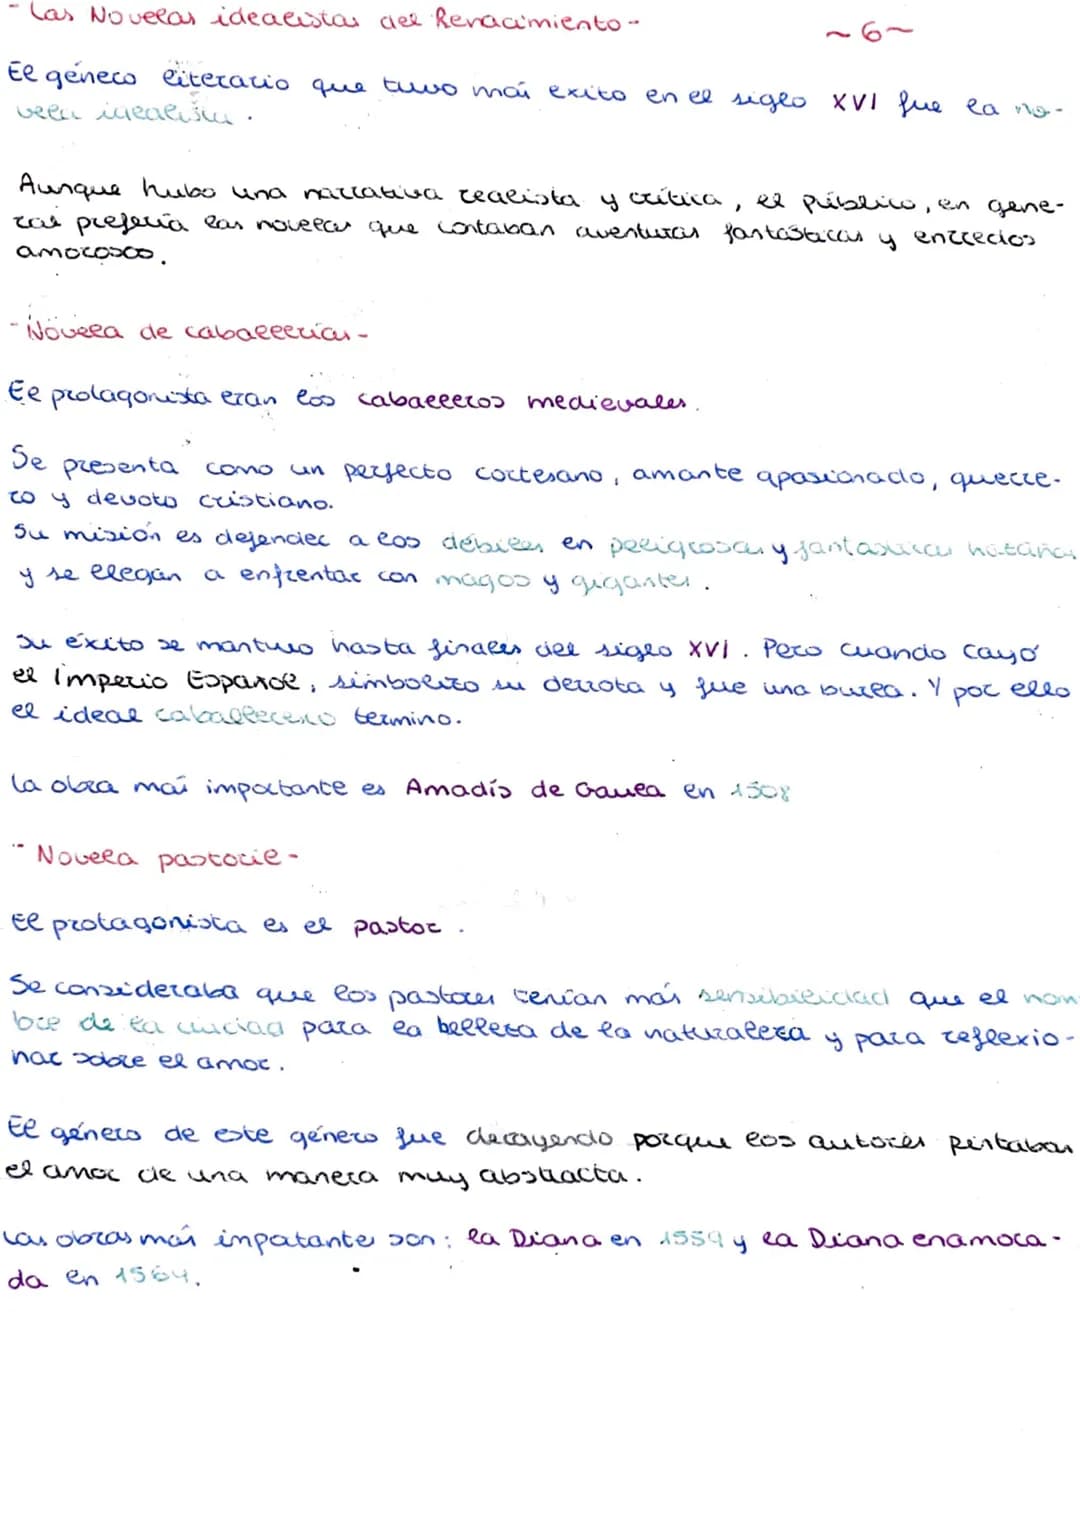 - Las Novelas idealistas del Renacimiento -
~6~
El género literario que tuvo más exito en el siglo XVI fue la no-
vela idealista.
Aunque hubo una narrativa realista y crítica, el público, en gene-
ral prefería las novelas que contaban aventuras fantásticas y enredos
amorosos.
- Novela de caballerías -
El protagonista eran los caballeros medievales.
Se presenta como un perfecto cortesano, amante apasionado, guerre-
ro y devoto cristiano.
Su misión es defender a los débiles en peligrosas y fantasticas
y se llegan a enfrentar con magos y gigantes.
Su éxito se mantuvo hasta finales del siglo XVI. Pero cuando cayó
el Imperio Español, simbolizo su derrota y fue una burla. Y por ello
el ideal caballeresco termino.
La obra más importante es Amadís de Gaula en 1508
- Novela pastoril -
El protagonista es el pastor.
Se consideraba que los pastores tenían más sensibilidad que el hom
bre de la ciudad para la belleza de la naturaleza y para reflexio-
nar sobre el amor.
El género de este género fue decayendo porque los autores pintaban
el amor de una manera muy abstracta.
Las obras más inpotante son: la Diana en 1559 y la Diana enamora-
da en 1564.